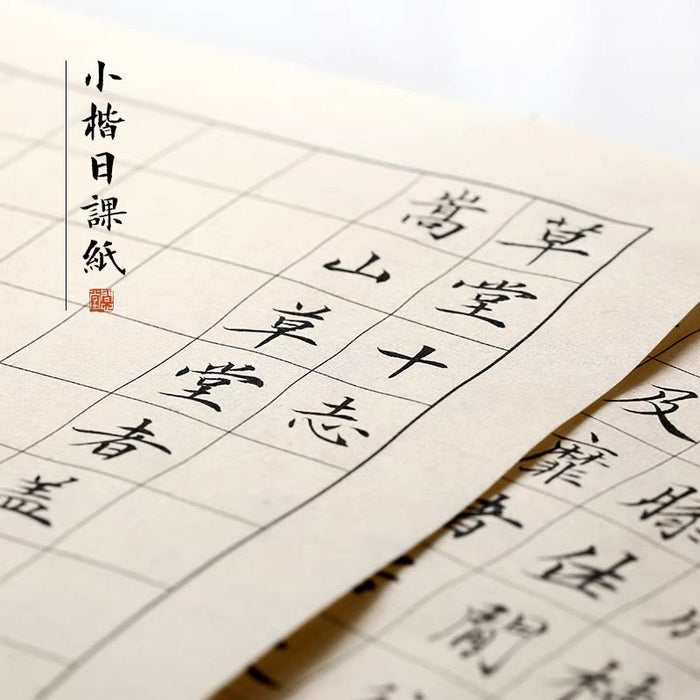 小楷日課紙
草堂十志
嵩山草堂者蓋
及靡者
膝休閒